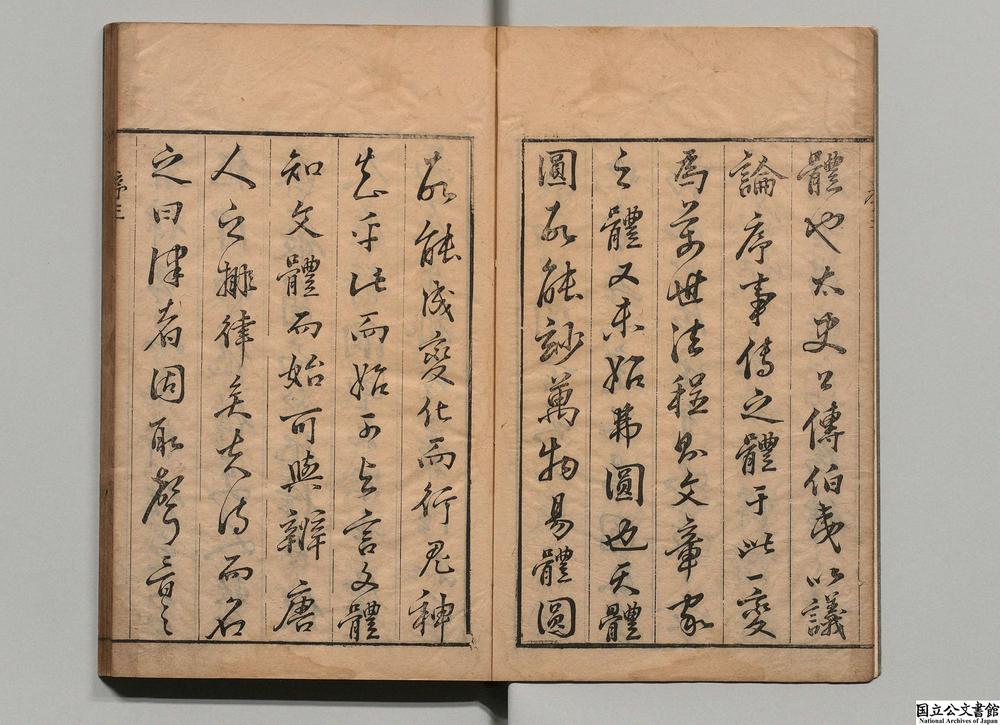 體也太史公傳伯夷以議
論序事傳之體于此一變
爲萬世法程則文章家
之體又未始非圓也天體
圓故能鈔萬物易體圓
故能成變化而行鬼神
知乎此而始可與言文體
知文體而始可與辨唐
人之排律矣夫詩而名
之曰律者固取聲音之
序三
国立公文書館
National Archives of Japan